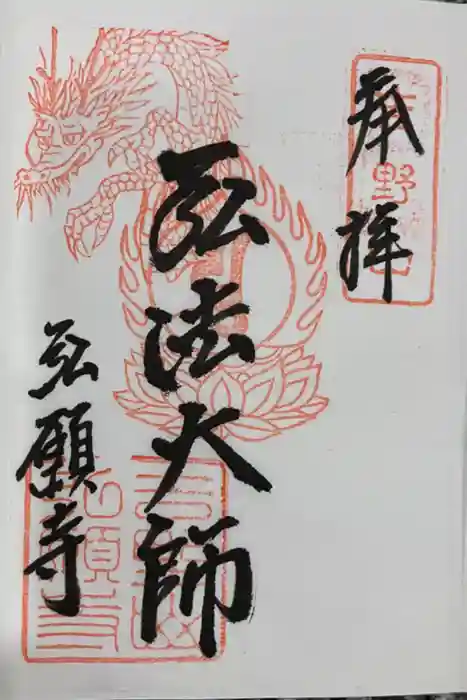 奉拝
弘法大師
弘願寺